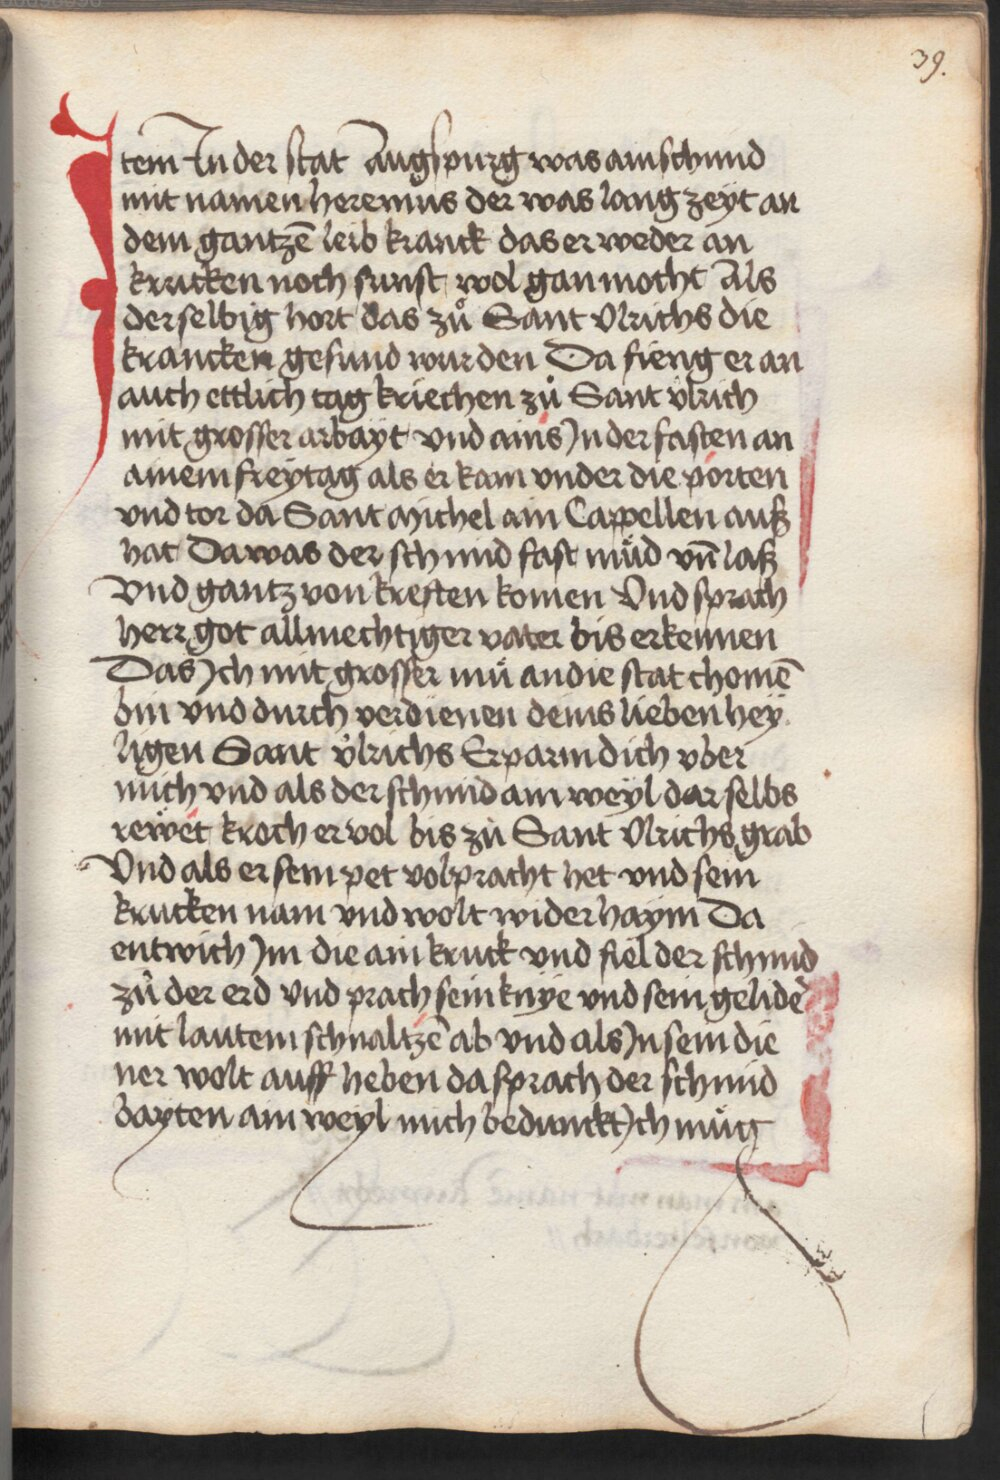 39.
Item In der stat Augspurg was ain schmid
mit namen heremus der was lang zeyt an
dem gantzē leib kranck das er weder an
krucken noch sunst wol gan mocht Als
der selbig hort das zů Sant Ulrichs die
krancken gesund wurden Da fieng er an
auch ettlich tag kriechen zů Sant ulrich
mit grosser arbayt vnd ains Jn der fasten an
ainem freytag als er kam vnder die porten
vnd tor da Sant Michel ain Cappellen auff
hat Da was der schmid fast müd vn̄ laß
Vnd gantz von kreften komen Vnd sprach
herr got allmechtiger vater bis erkennen
Das Jch mit grosser mü an die stat chomē
bin vnd durch verdienen deins lieben hey
ligen Sant ulrichs Erparm dich vber
mich vnd als der schmid ain weyl dar selbs
rewet kroch er vol bis zů Sant Ulrichs grab
Vnd als er sein pet volpracht het vnd sein
krucken nam vnd wolt wider haym Da
entwich Jm die ain kruck vnd fiel der schmid
zů der erd vnd prach sein knye vnd sein gelidē
mit lautem schnaltzē ab vnd als Jn sein die
ner wolt auff heben da sprach der schmid
bayten ain weyl mich bedunckt Jch müg